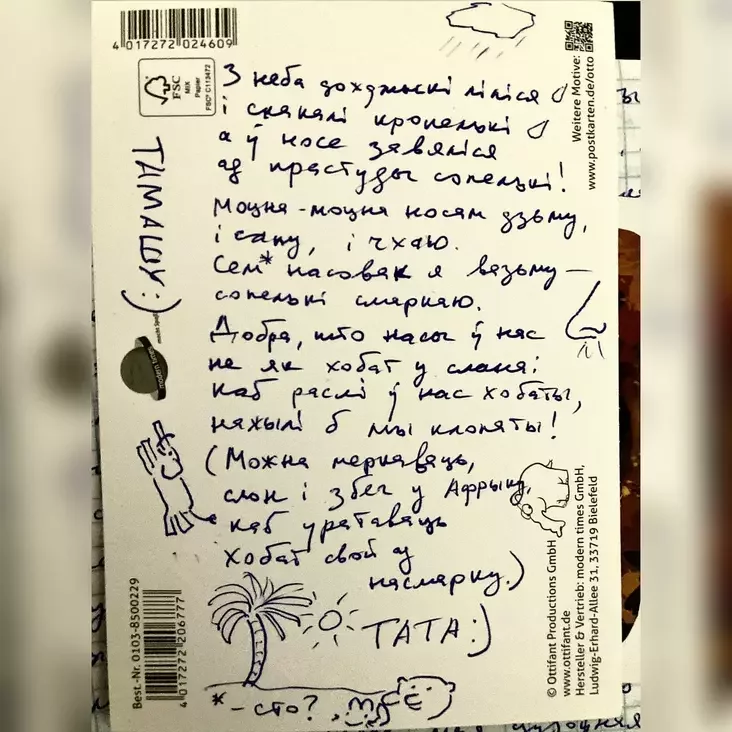 4 017272 024609
FSC
MIX
Papier
FSC® C113472
Weitere Motive:
www.postkarten.de/otto
З неба дожджыскі ліліся
і скакалі кропелькі
а ў носе завяліся
ад прастуды сопелькі!
Моцна-моцна носам дзьму,
і сапу, і чхаю.
Сем* насовак я вазьму —
сопелькі смаркаю.
Добра, што насы ў нас
не як хобат у слана:
каб раслі ў нас хобаты,
няжылі б мы клопаты!
(Можна меркаваць,
слон і збег у Афрыку,
каб уратаваць
хобат свой ад
насмарку.)
ТАТА:)
*-сто?
ТИМАШУ:)
modern times
macht Spaß!
Best.-Nr. 0103-8500229
4 017272 206777
© Ottifant Productions GmbH
www.ottifant.de
Hersteller & Vertrieb: modern times GmbH,
Ludwig-Erhard-Allee 31, 33719 Bielefeld